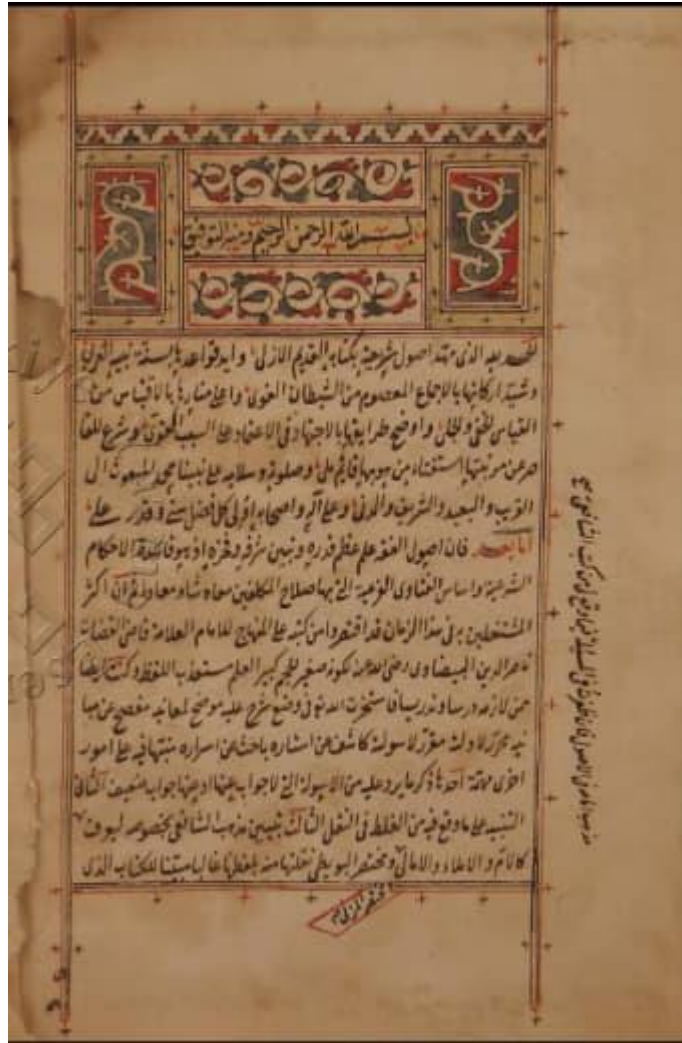 بسم الله الرحمن الرحيم وبه التوفيق
الحمد لله الذى مهد اصول شريعته بكتابه القديم الازلى وايد قواعدها بسنة نبيه العربى
وشيد اركانها بالاجماع المعصوم من الشيطان الغوى واعلى منارها بالاقتباس من
القياس الخفى والجلى واوضح طرايقها بالاجتهاد فى الاعتماد على السبب القوى وشرع للقا
صر عن مرتبتها استفتاء من هو بها قايم ملى وصلوته وسلامه على نبينا محمد المبعوث الى
القريب والبعيد والشريف والدنى وعلى آله واصحابه اولى كل فضل سنى وقدر على
اما بعد فان اصول الفقه علم عظم قدره وتبين شرفه وفخره اذ هو قاعدة الاحكام
الشرعية واساس الفتاوى الفرعية التى بها صلاح المكلفين معاشا ومعادا ثم ان اكثر
المشتغلين به فى هذا الزمان قد اقتصروا من كتبه على المنهاج للامام العلامة قاضى القضاة
ناصر الدين البيضاوى رضى الله عنه لكونه صغير الحجم كبير العلم مستعذب اللفظ وكنت ايضا
ممن لازمه درسا وتدريسا فاستخرت الله تعالى فى وضع شرح عليه موضح لمعانيه مفصح عن مبا
نيه محرر لادلته مقرر لاصوله كاشف عن استاره باحث عن اسراره منبها فيه على امور
اخرى مهمة احدها ذكر ما يرد عليه من الاسولة التى لا جواب عنها او عنها جواب ضعيف الثانى
التنبيه على ما وقع فيه من الغلط فى النقل الثالث تبيين مذهب الشافعى بخصوصه ليعرف
كالام والاملاء والامالى ومختصر البويطى نقلتها منه بلفظها غالبا مبينا للكتاب الذى
ومختصر المزنى